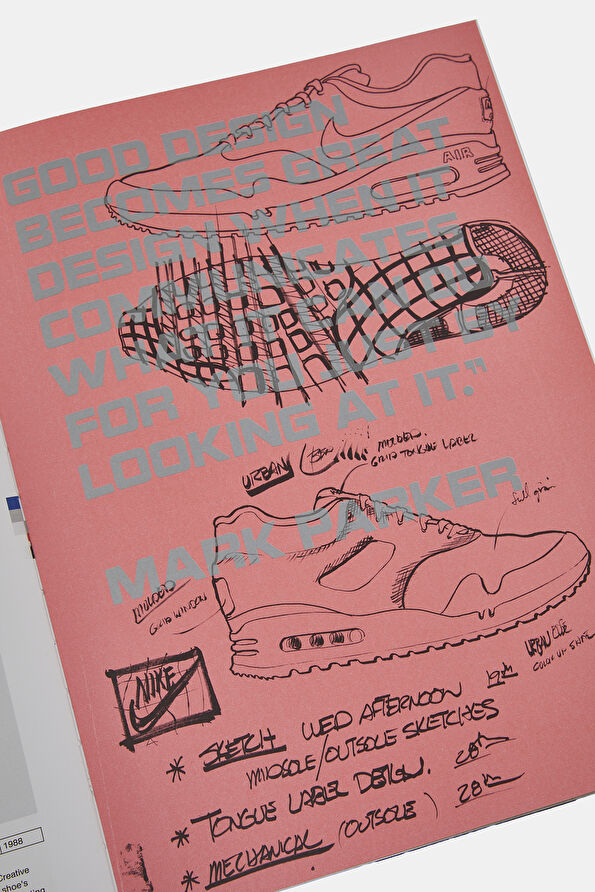 GOOD DESIGN
BECOMES GREAT
DESIGN WHEN IT
COMMUNICATES
FOR YOU JUST BY
LOOKING AT IT."
MARK PARKER
AIR
URBAN
MOLDED
GRID TONGUE LABEL
full grain
MOLDED
GRID WINDOW
URBAN
NIKE
* SKETCH WED AFTERNOON 19th
MIDSOLE/OUTSOLE SKETCHES
* TONGUE LABEL DESIGN. 28th
* MECHANICAL (OUTSOLE) 28th
1988
Creative
shoe's